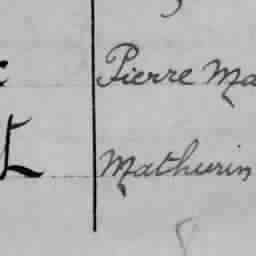 Pierre Ma
Mathurin